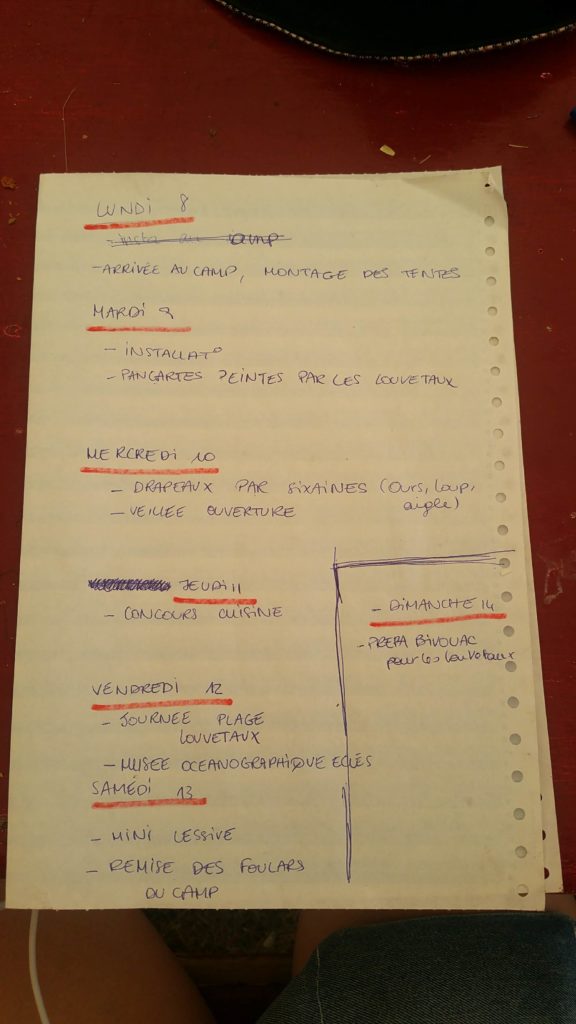 LUNDI 8
insta au camp
- ARRIVÉE AU CAMP, MONTAGE DES TENTES
MARDI 9
- INSTALLAT°
- PANCARTES PEINTES PAR LES LOUVETAUX
MERCREDI 10
- DRAPEAUX PAR SIXAINES (Ours, Loup,
aigle)
- VEILLÉE OUVERTURE
JEUDI 11
- CONCOURS CUISINE
VENDREDI 12
- JOURNÉE PLAGE
LOUVETAUX
- MUSÉE OCEANOGRAPHIQUE ECLÉS
SAMÉDI 13
- MINI LESSIVE
- REMISE DES FOULARS
DU CAMP
- DIMANCHE 14
- PREPA BIVOUAC
pour les louvetaux